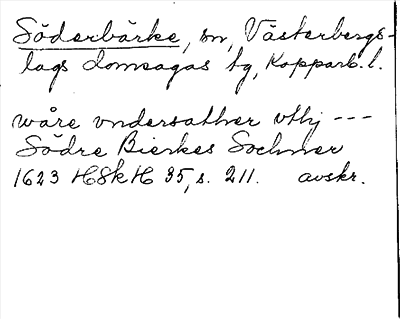 Söderbärke, sn, Västerbergs-
lags domsagas tg, Kopparb. l.
wåre vndersåther vthj ---
Södre Bierkes Sochner
1623 HSkH 35, s. 211. avskr.